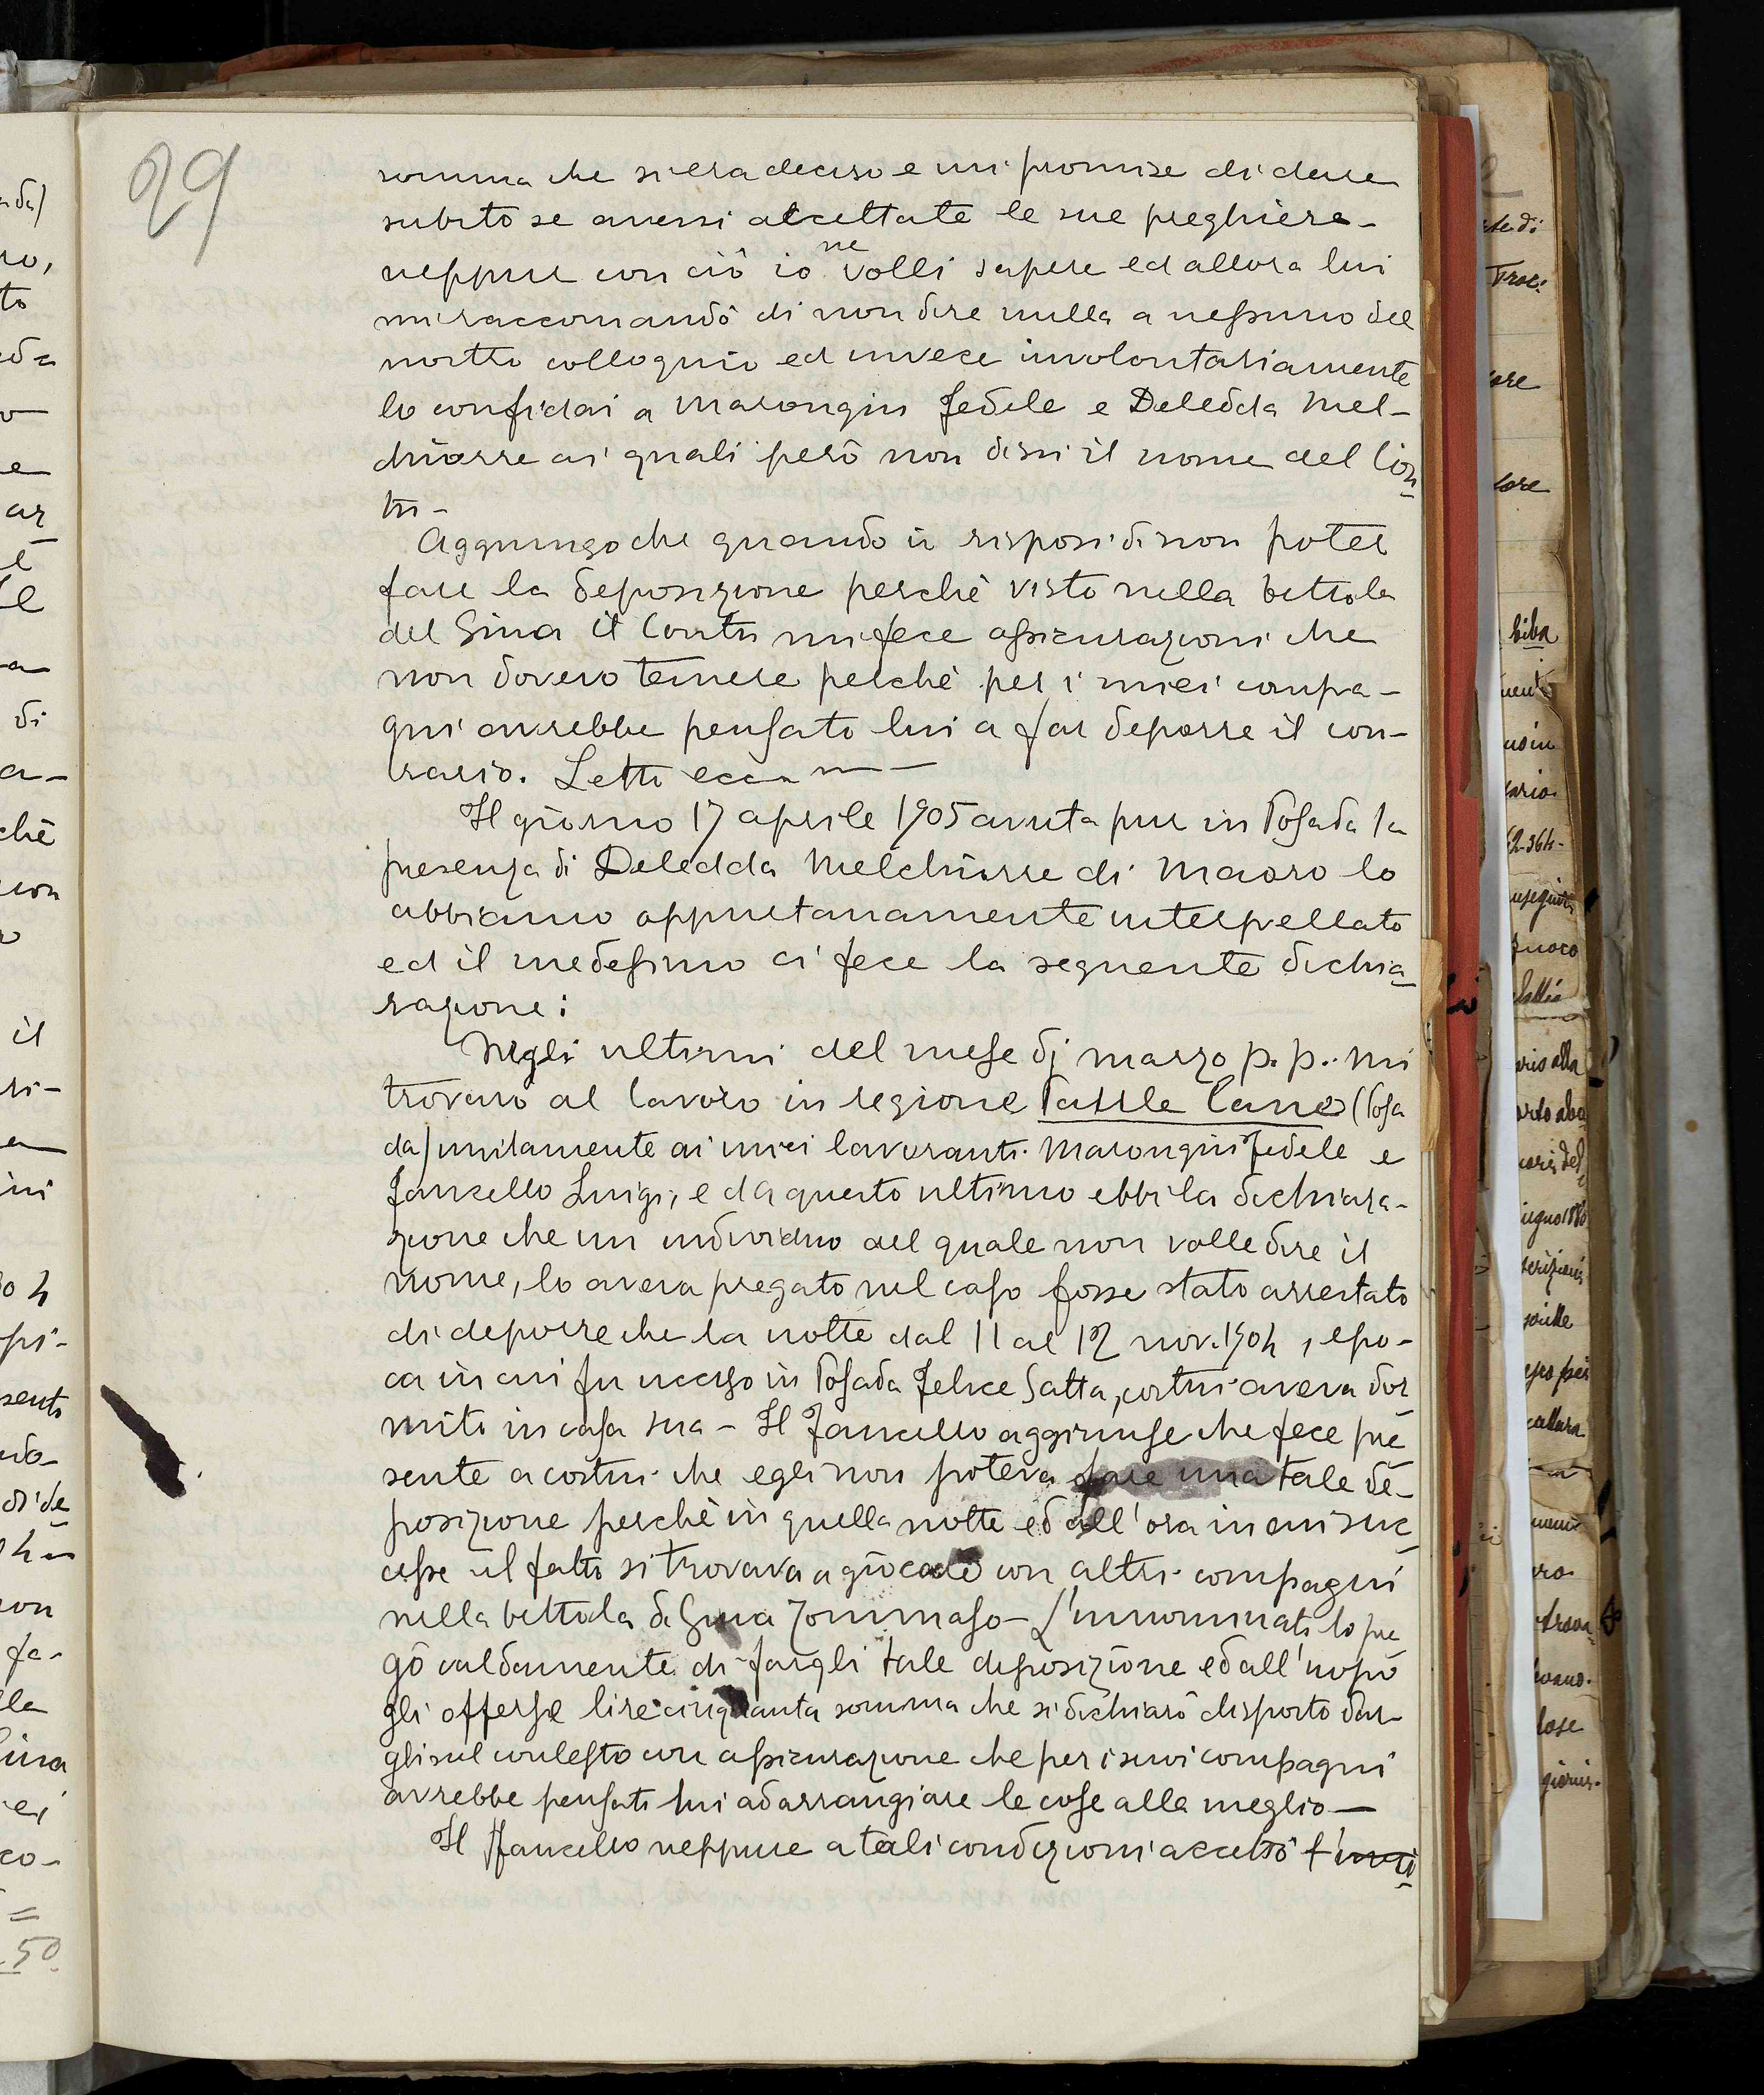 29
somma che si era deciso e mi promise di dare
subito se avessi accettate le sue preghiere -
neppure con ciò io ne volli sapere ed allora lui
mi raccomandò di non dire nulla a nessuno del
nostro colloquio ed invece involontariamente
lo confidai a Marongiu Fedele e Deledda Mel-
chiorre ai quali però non dissi il nome del Con
tu -
Aggiungo che quando io risposi di non poter
fare la deposizione perchè visto nella bettola
del Gina il Contu mi fece assicurazioni che
non dovevo temere perchè per i miei compa-
gni avrebbe pensato lui a far deporre il con-
trario. Letto ecc.
Il giorno 17 aprile 1905 avuta pure in Posada la
presenza di Deledda Melchiorre di Mauro lo
abbiamo oppurtanamente interpellato
ed il medesimo ci fece la seguente dichia
razione:
Negli ultimi del mese di marzo p. p. mi
trovavo al lavoro in regione (Posa
da) unitamente ai miei lavoranti Marongiu Fedele e
Fancello Luigi, e da questo ultimo ebbi la dichiara-
zione che un individuo del quale non volle dire il
nome, lo aveva pregato nel caso fosse stato arrestato
di deporre che la notte dal 11 al 12 nov. 1904, epo-
ca in cui fu ucciso in Posada Felice Satta, costui aveva dor
mito in casa sua - Il Fancello aggiunse che fece pre
sente a costui che egli non poteva fare una tale de-
posizione perchè in quella notte ed all'ora in cui suc
cesse il fatto si trovava a giocare con altri compagni
nella bettola di Gina Tommaso - L'innominato lo pre
gò caldamente di fargli tale deposizione ed all'uopo
gli offerse lire cinquanta somma che si dichiarò disposto dar-
gli sul contesto con assicurazione che per i suoi compagni
avrebbe pensato lui ad arrangiare le cose alla meglio -
Il Fancello neppure a tali condizioni accettò